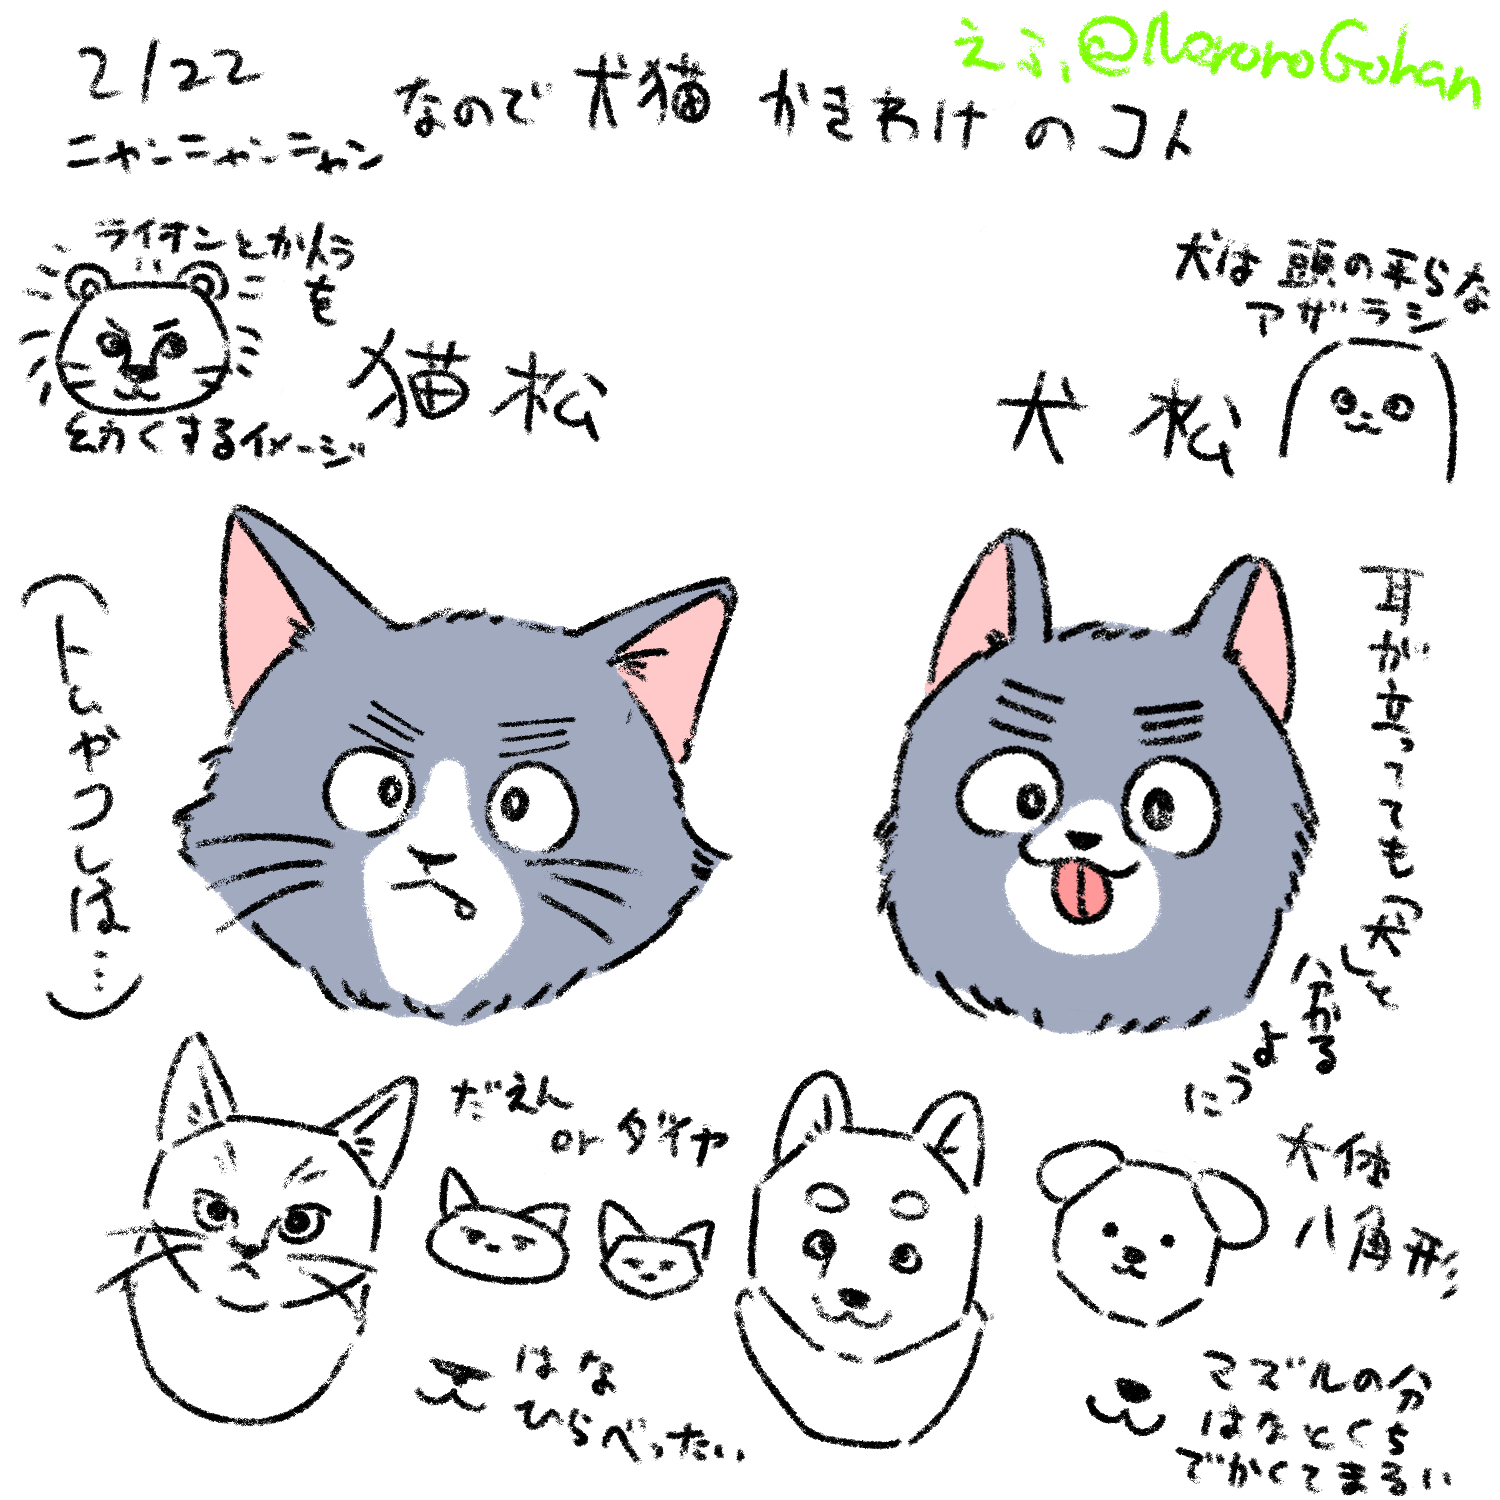 えふ,@NororoGohan
2/22
ニャンニャンニャン
なので犬猫 かきわけ のコト
ライオンとかトラ
を
幼くするイメージ
猫松
犬は頭の平らな
アザラシ
犬松
(トレカツコレは…)
耳が立っても「犬」と
分かる
ように
だえん
or ダイヤ
大体
八角形
はな
ひらべったい
マズルの分
はなとくち
でかくてまるい